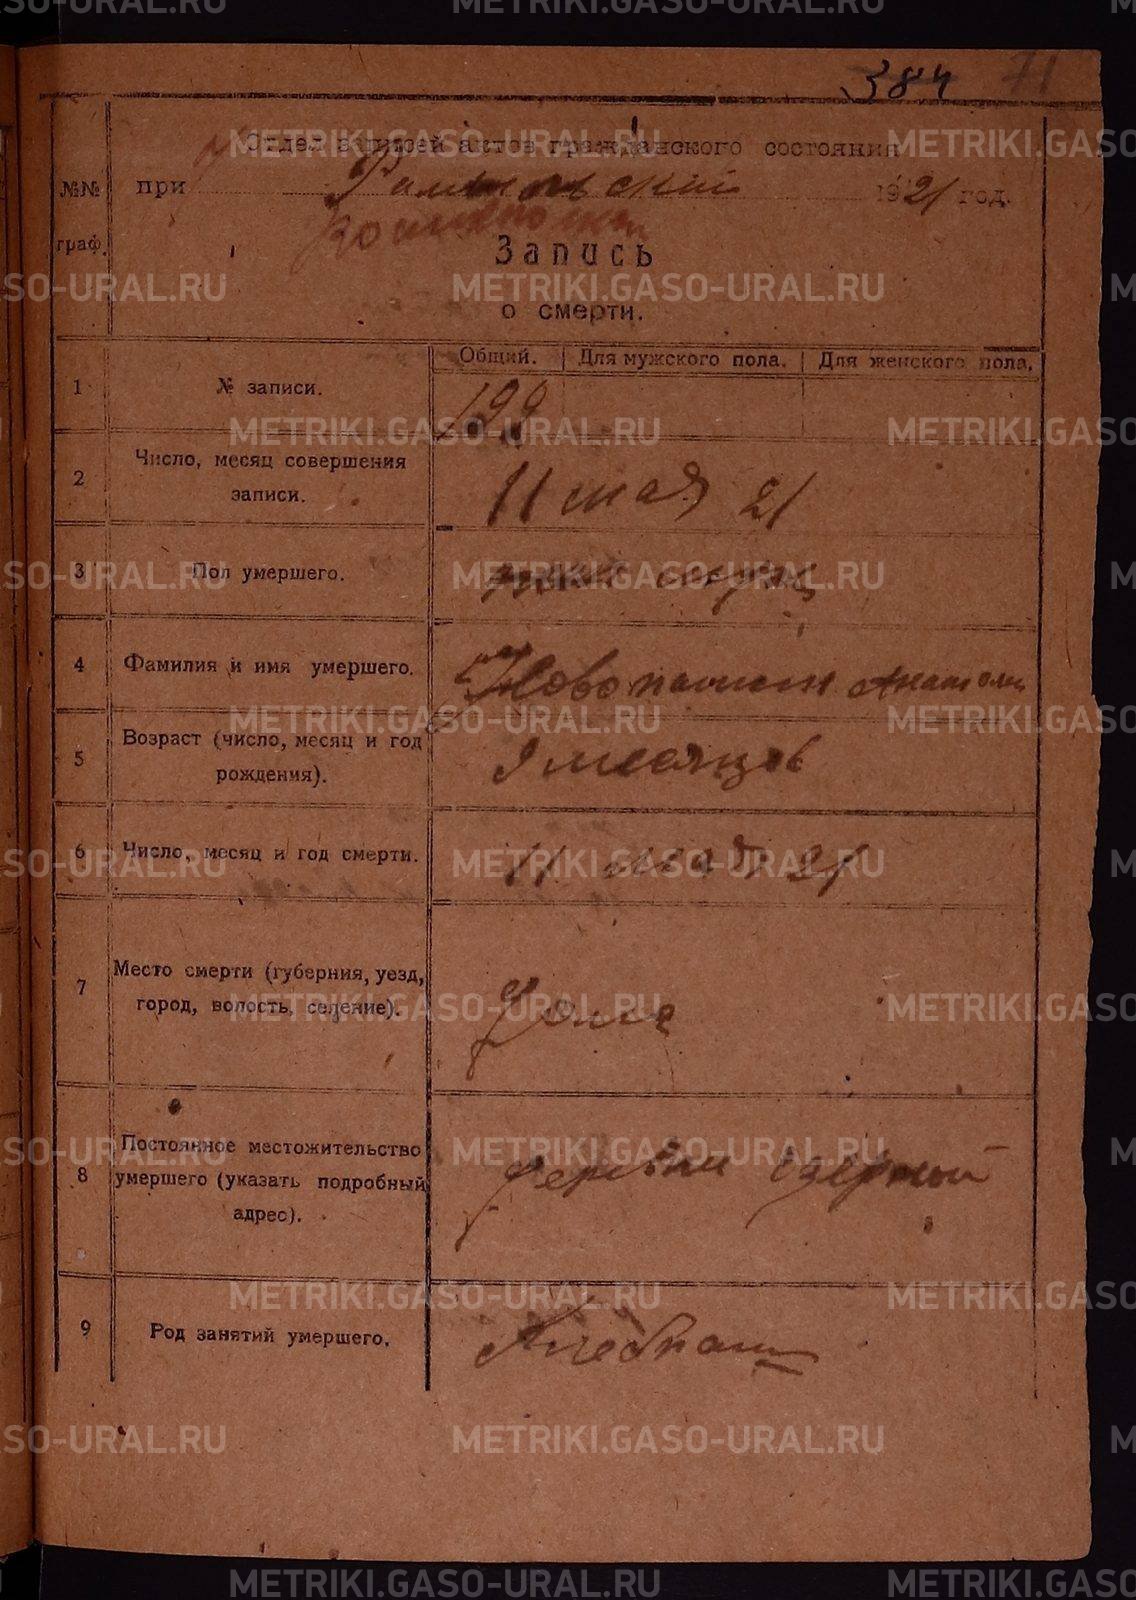 384 71
Отдел записей актов гражданского состояния
при 1921 год.
№№
граф.
Запись
о смерти.
Общий. Для мужского пола. Для женского пола.
1 № записи. 199
2 Число, месяц совершения
записи.
11 мая 21
3 Пол умершего.
4 Фамилия и имя умершего. Новопашин Анатолий
5 Возраст (число, месяц и год
рождения).
9 месяцов
6 Число, месяц и год смерти. 11 мая 21
7 Место смерти (губерния, уезд,
город, волость, селение).
Дома
8 Постоянное местожительство
умершего (указать подробный
адрес).
Озерной
9 Род занятий умершего.
METRIKI.GASO-URAL.RU